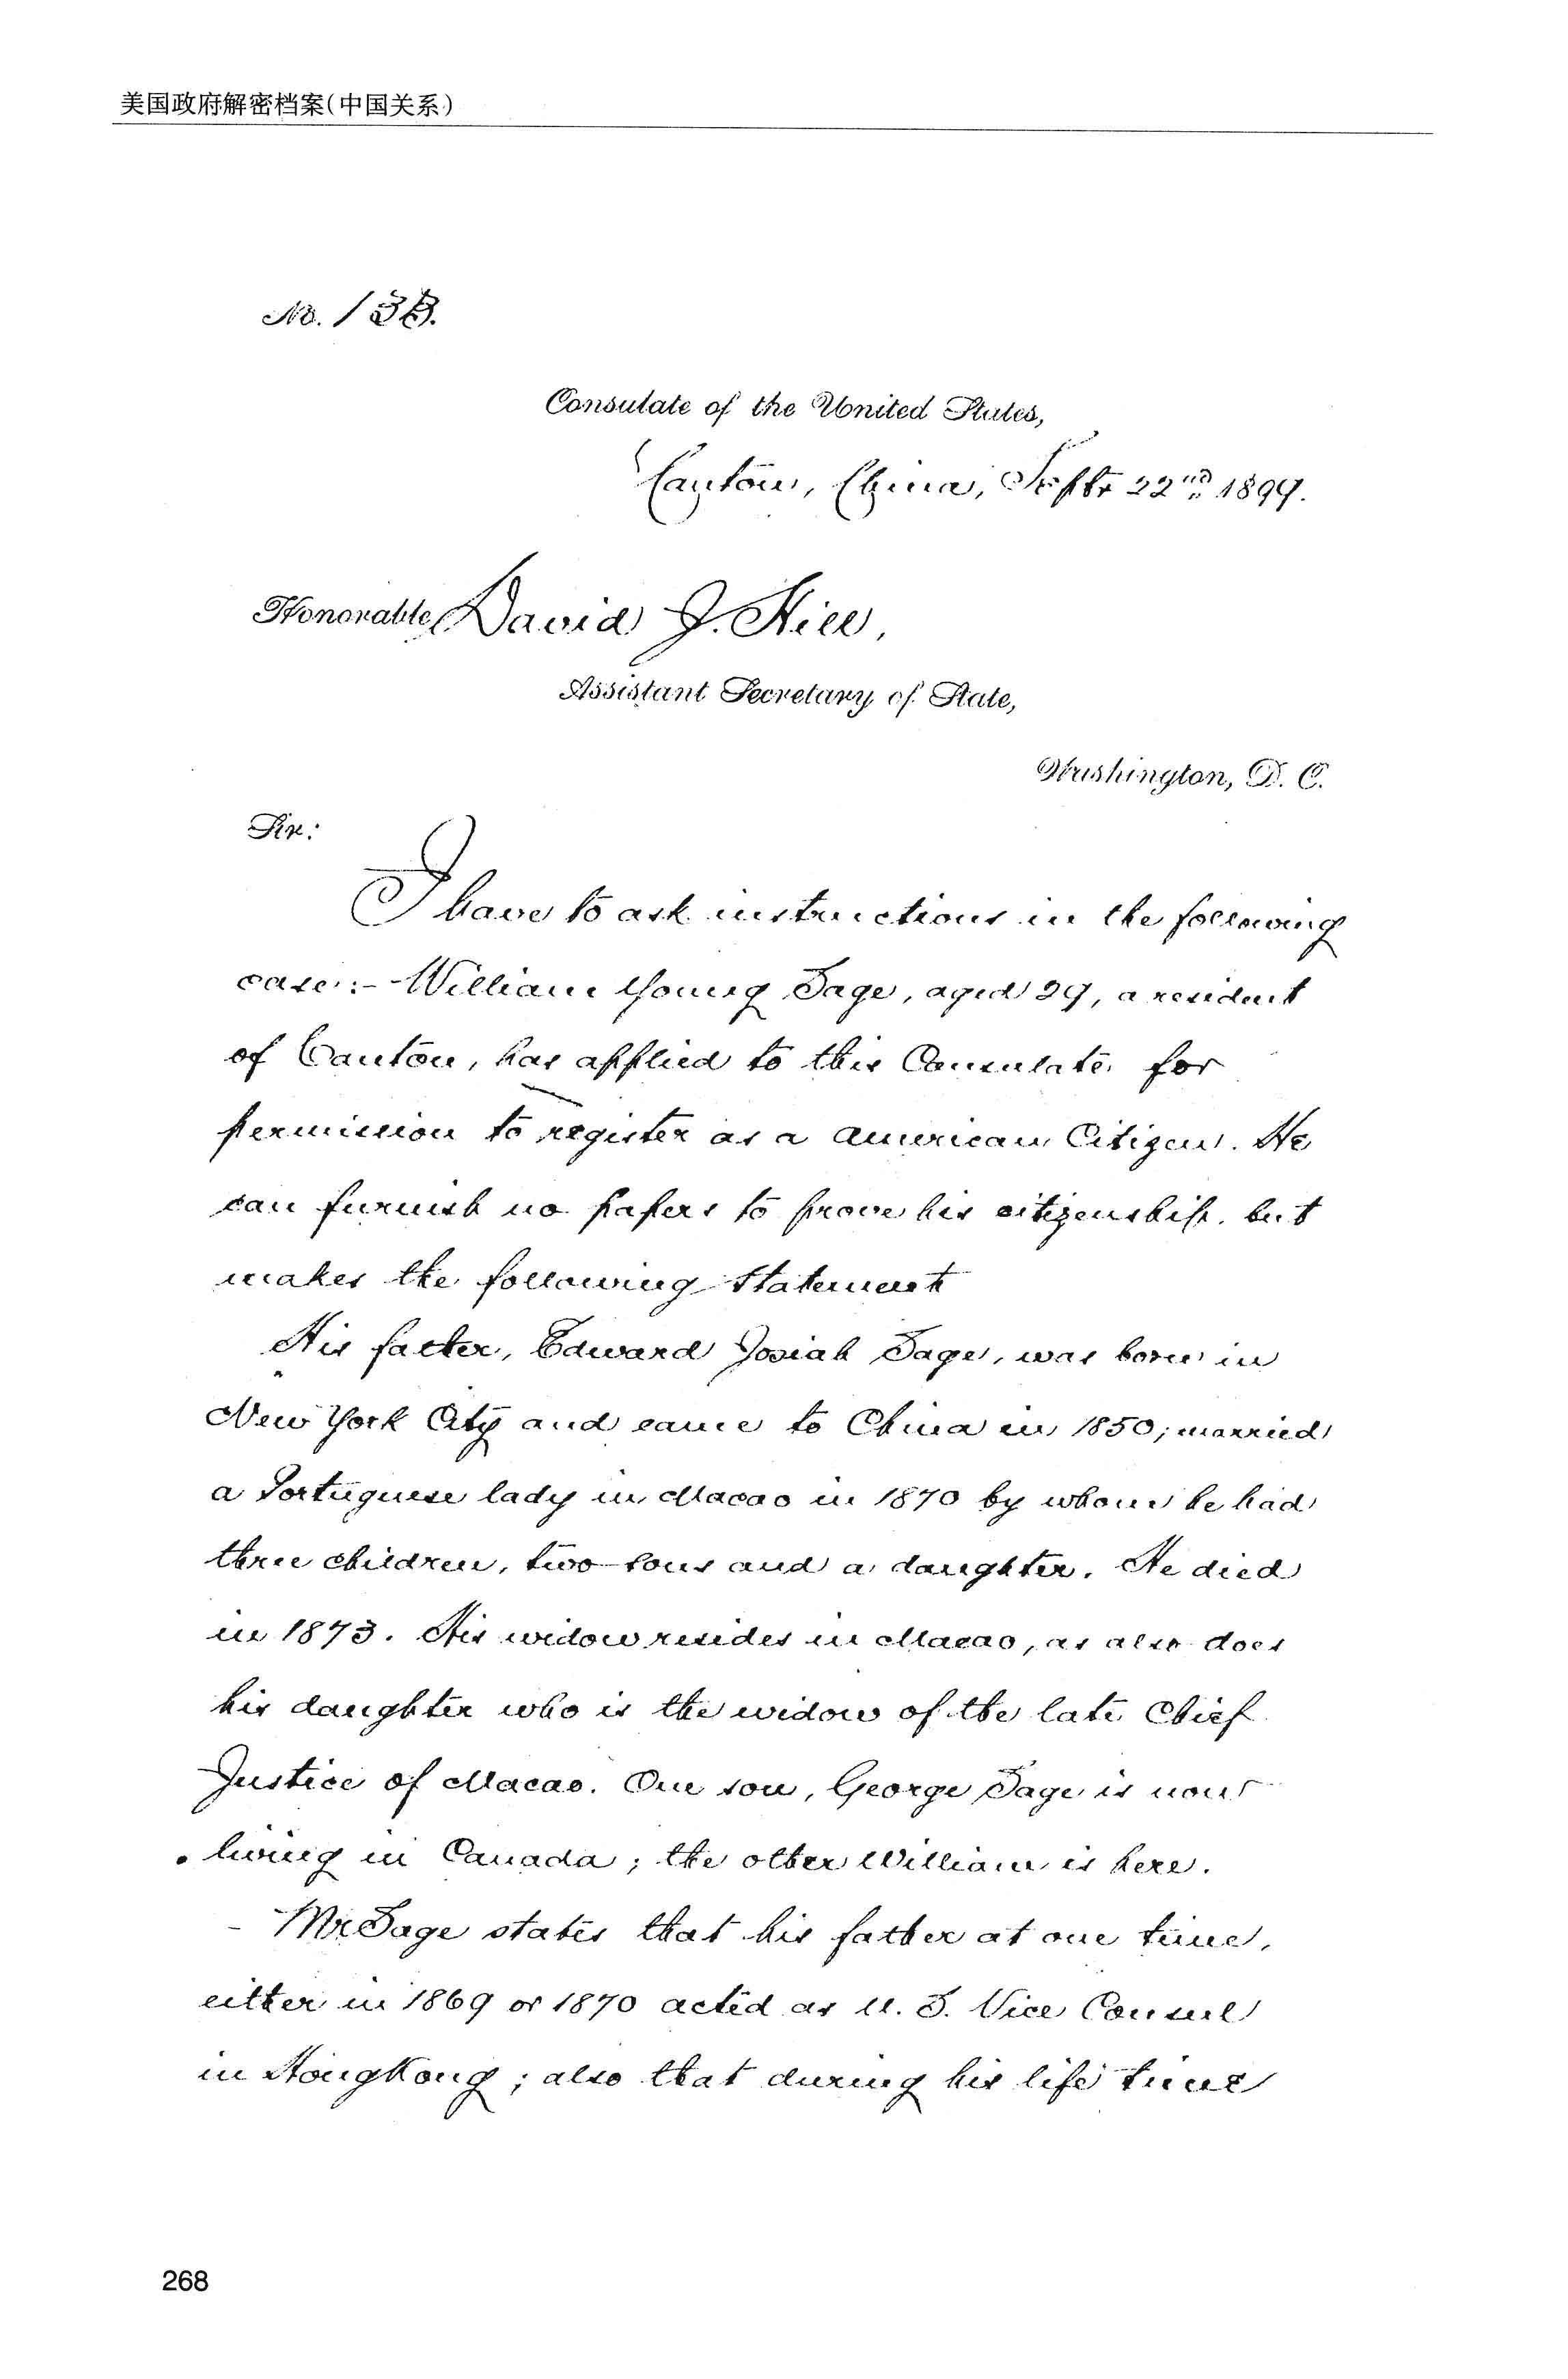 美国政府解密档案(中国关系)
No. 133.
Consulate of the United States,
Canton, China, Septr 22nd 1899.
Honorable David J. Hill,
Assistant Secretary of State,
Washington, D. C.
Sir:
I have to ask instructions in the following
case:- William Young Sage, aged 29, a resident
of Canton, has applied to this Consulate for
permission to register as a American Citizen. He
can furnish no papers to prove his citizenship, but
makes the following statement
His father, Edward Josiah Sage, was born in
New York City and came to China in 1850; married
a Portuguese lady in Macao in 1870 by whom he had
three children, two sons and a daughter. He died
in 1873. His widow resides in Macao, as also does
his daughter who is the widow of the late Chief
Justice of Macao. One son, George Sage is now
living in Canada; the other William is here.
Mr Sage states that his father at one time,
either in 1869 or 1870 acted as U. S. Vice Consul
in HongKong; also that during his life time
268